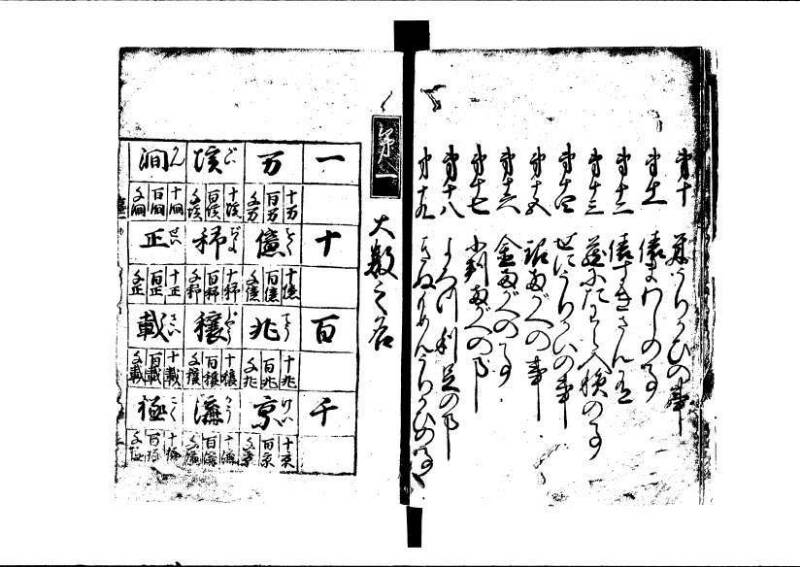 第十 米うりかひの事
第十一 俵まわしの事
第十二 俵すぎさん用
第十三
第十四 ぜにうりかひの事
第十五 銀両がへの事
第十六 金両がへの事
第十七 小判両がへの事
第十八 よろづ利足の事
第十九 きぬもめんうりかひの事
第一
大数之名
一
十
百
千
万
十万 百万 千万
億 をく
十億 百億 千億
兆 てう
十兆 百兆 千兆
京 けい
十京 百京 千京
垓
十垓 百垓 千垓
秭
十秭 百秭 千秭
穣
十穣 百穣 千穣
溝 かう
十溝 百溝 千溝
澗 かん
十澗 百澗 千澗
正 せい
十正 百正 千正
載 さい
十載 百載 千載
極 ごく
十極 百極 千極